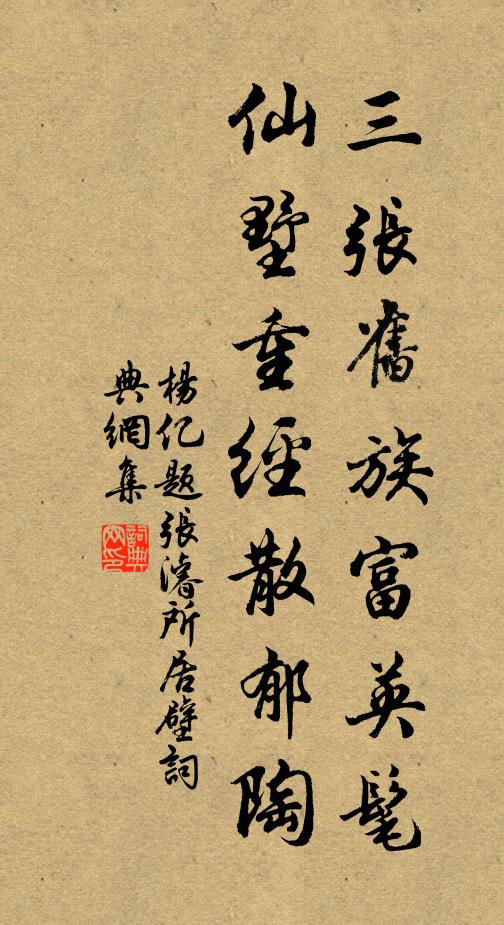 三張舊族富英髦
仙墅重經散郁陶
楊億題張濬所居壁詞
典網集
詞典網印